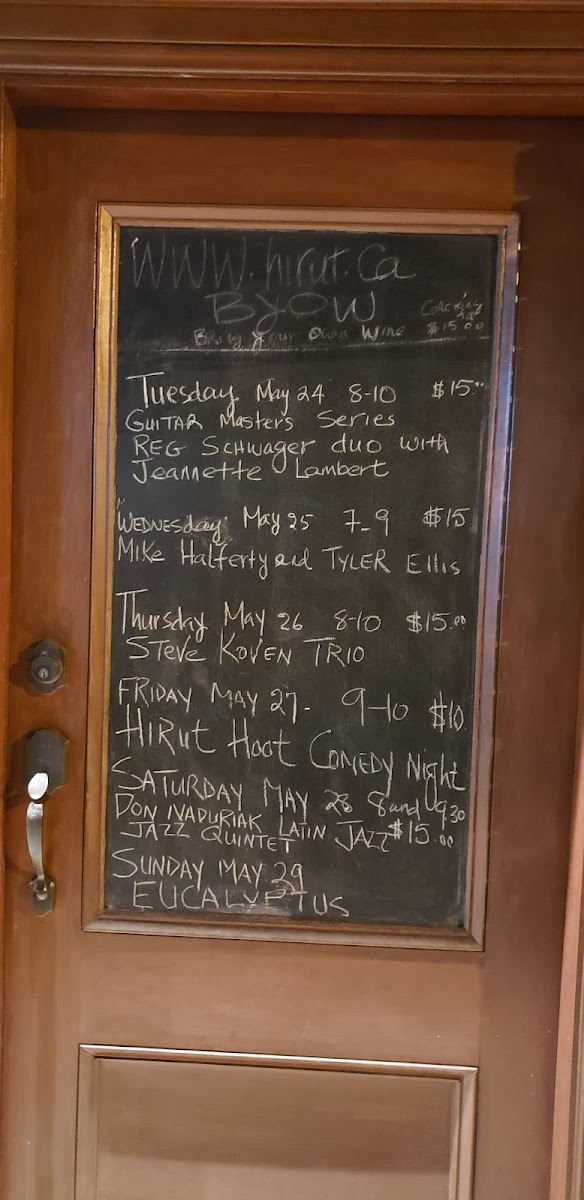 WWW.hirut.Ca
BYOW
Bring Your Own Wine $15.00
Tuesday May 24 8-10 $15.00
GUITAR Masters Series
REG Schwager duo with
Jeannette Lambert
WEDNESday May 25 7-9 $15
Mike Halferty and TYLER Ellis
Thursday May 26 8-10 $15.00
STeve KOVEN TRIO
FRIDAY MAY 27- 9-10 $10
HiRut Hoot Comedy Night
SATURDAY MAY 28 8 and 9.30
DON NADURIAK LATIN JAZZ $15.00
JAZZ QUINTET
SUNDAY MAY 29
EUCALYPTUS